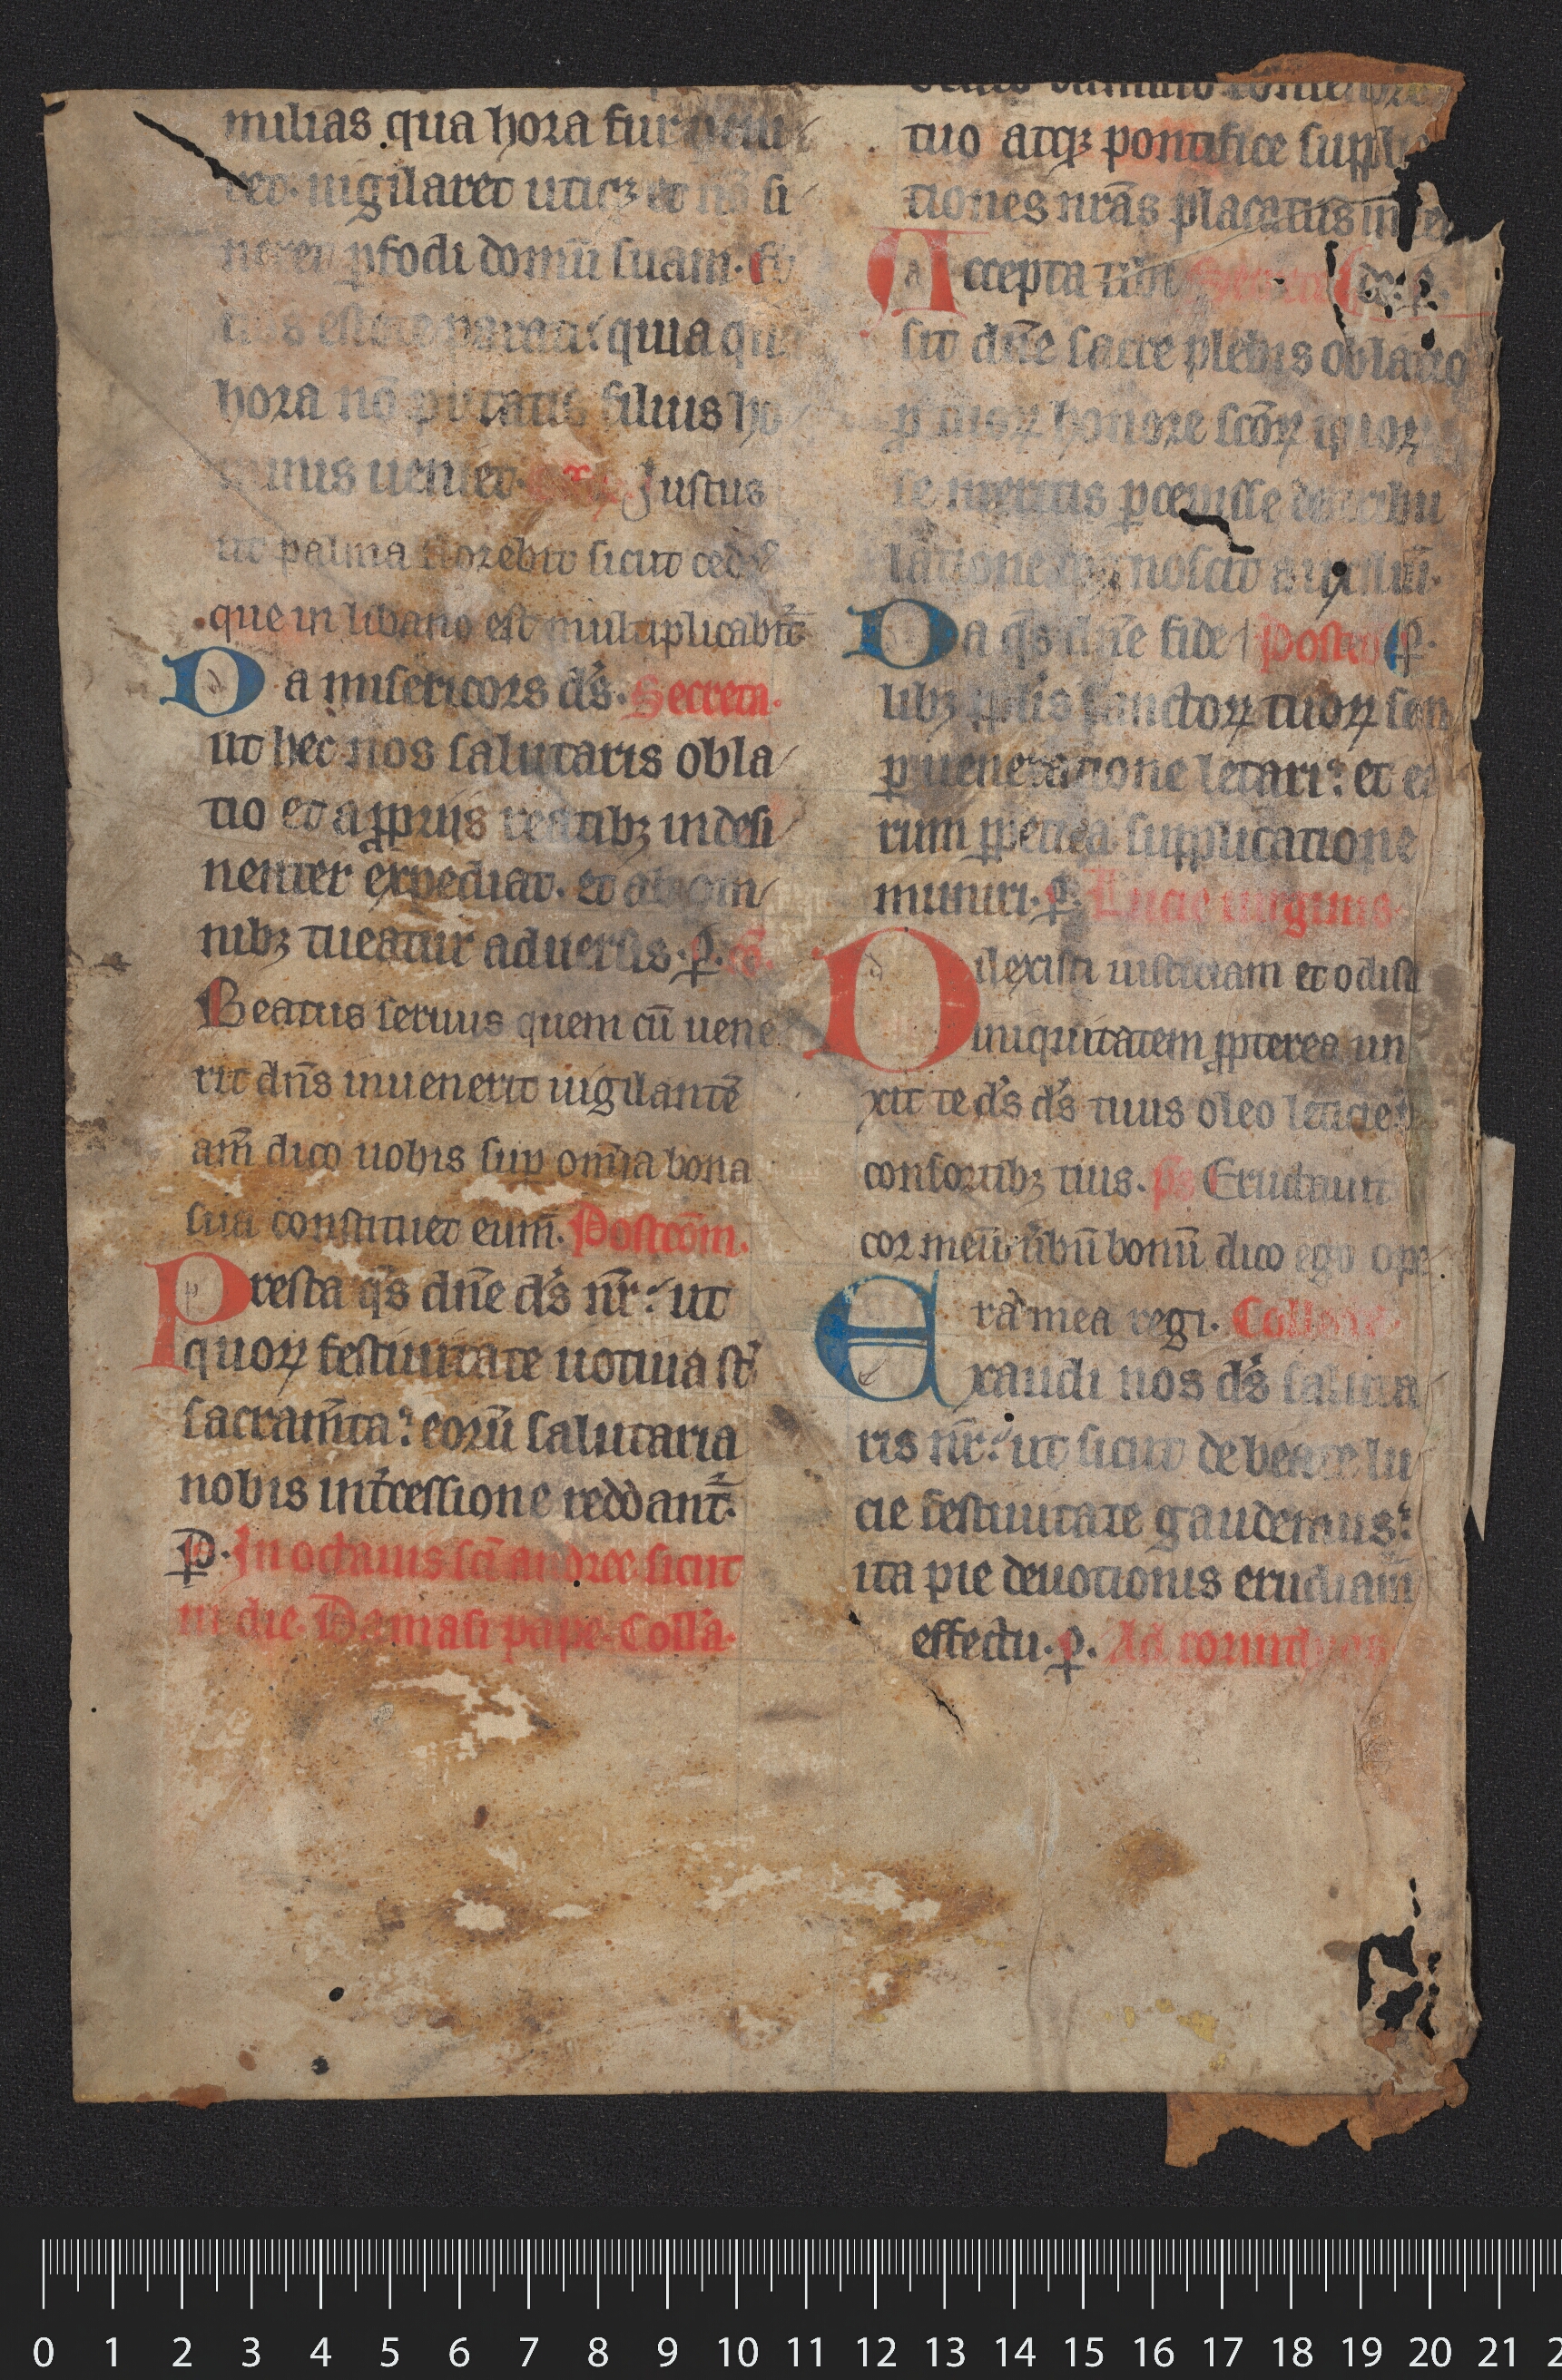 milias qua hora fur ueni
ret. uigilaret utiqꝫ et nō si
neret ꝑfodi domū suam. Et
uos estote parati quia qua
hora nō putatis filius ho
minis ueniet. Justus
ut palma florebit sicut cedꝰ
que in libano est multiplicabit᷑
Da misericors ds̄. Secreta.
ut hec nos salutaris obla
tio et a ꝓpriis reatibꝫ indesi
nenter expediat. et ab om
nibꝫ tueatur aduersis. ꝑ. cō.
Beatus seruus quem cū uene
rit dn̄s inuenerit uigilantē
am̄ dico uobis suꝑ om̄ia bona
sua constituet eum. Postcōm.
Presta qs̄ dn̄e ds̄ nr̄ ut
quoꝝ festiuitate uotiua st̄
sacram̄ta eorū salutaria
nobis int̄cessione reddant᷑.
ꝑ. In octauis sc̄i andree sicut
in die. Damasi pape. Coll̄a.
tuo atqꝫ pontifice suppli
tiones nr̄as placatus inten
Accepta tibi Secreta de. ꝑ.
sit dn̄e sacre plebis oblatio
ꝑ tuoꝝ honore scōꝝ quoꝝ
se meritis ꝑcepisse de tribu
latione cognoscit auxiliū.
Da qs̄ dn̄e fide Postco ꝑ.
libꝫ pplis̄ sanctoꝝ tuoꝝ sem
ꝑ ueneratione letari et eo
rum ꝑpetua supplicatione
muniri. ꝑ. Lucie uirginis
Dilexisti iusticiam et odisti
iniquitatem ꝓpterea un
xit te ds̄ ds̄ tuus oleo leticie p
consortibꝫ tuis. ps Eructauit
cor meū ūbū bonū dico ego ope
ra mea regi. Collecta
Exaudi nos ds̄ saluta
ris nr̄ ut sicut de beate lu
cie festiuitate gaudemus
ita pie deuotionis erudiam᷑
effectu. ꝑ. Ad corinthios